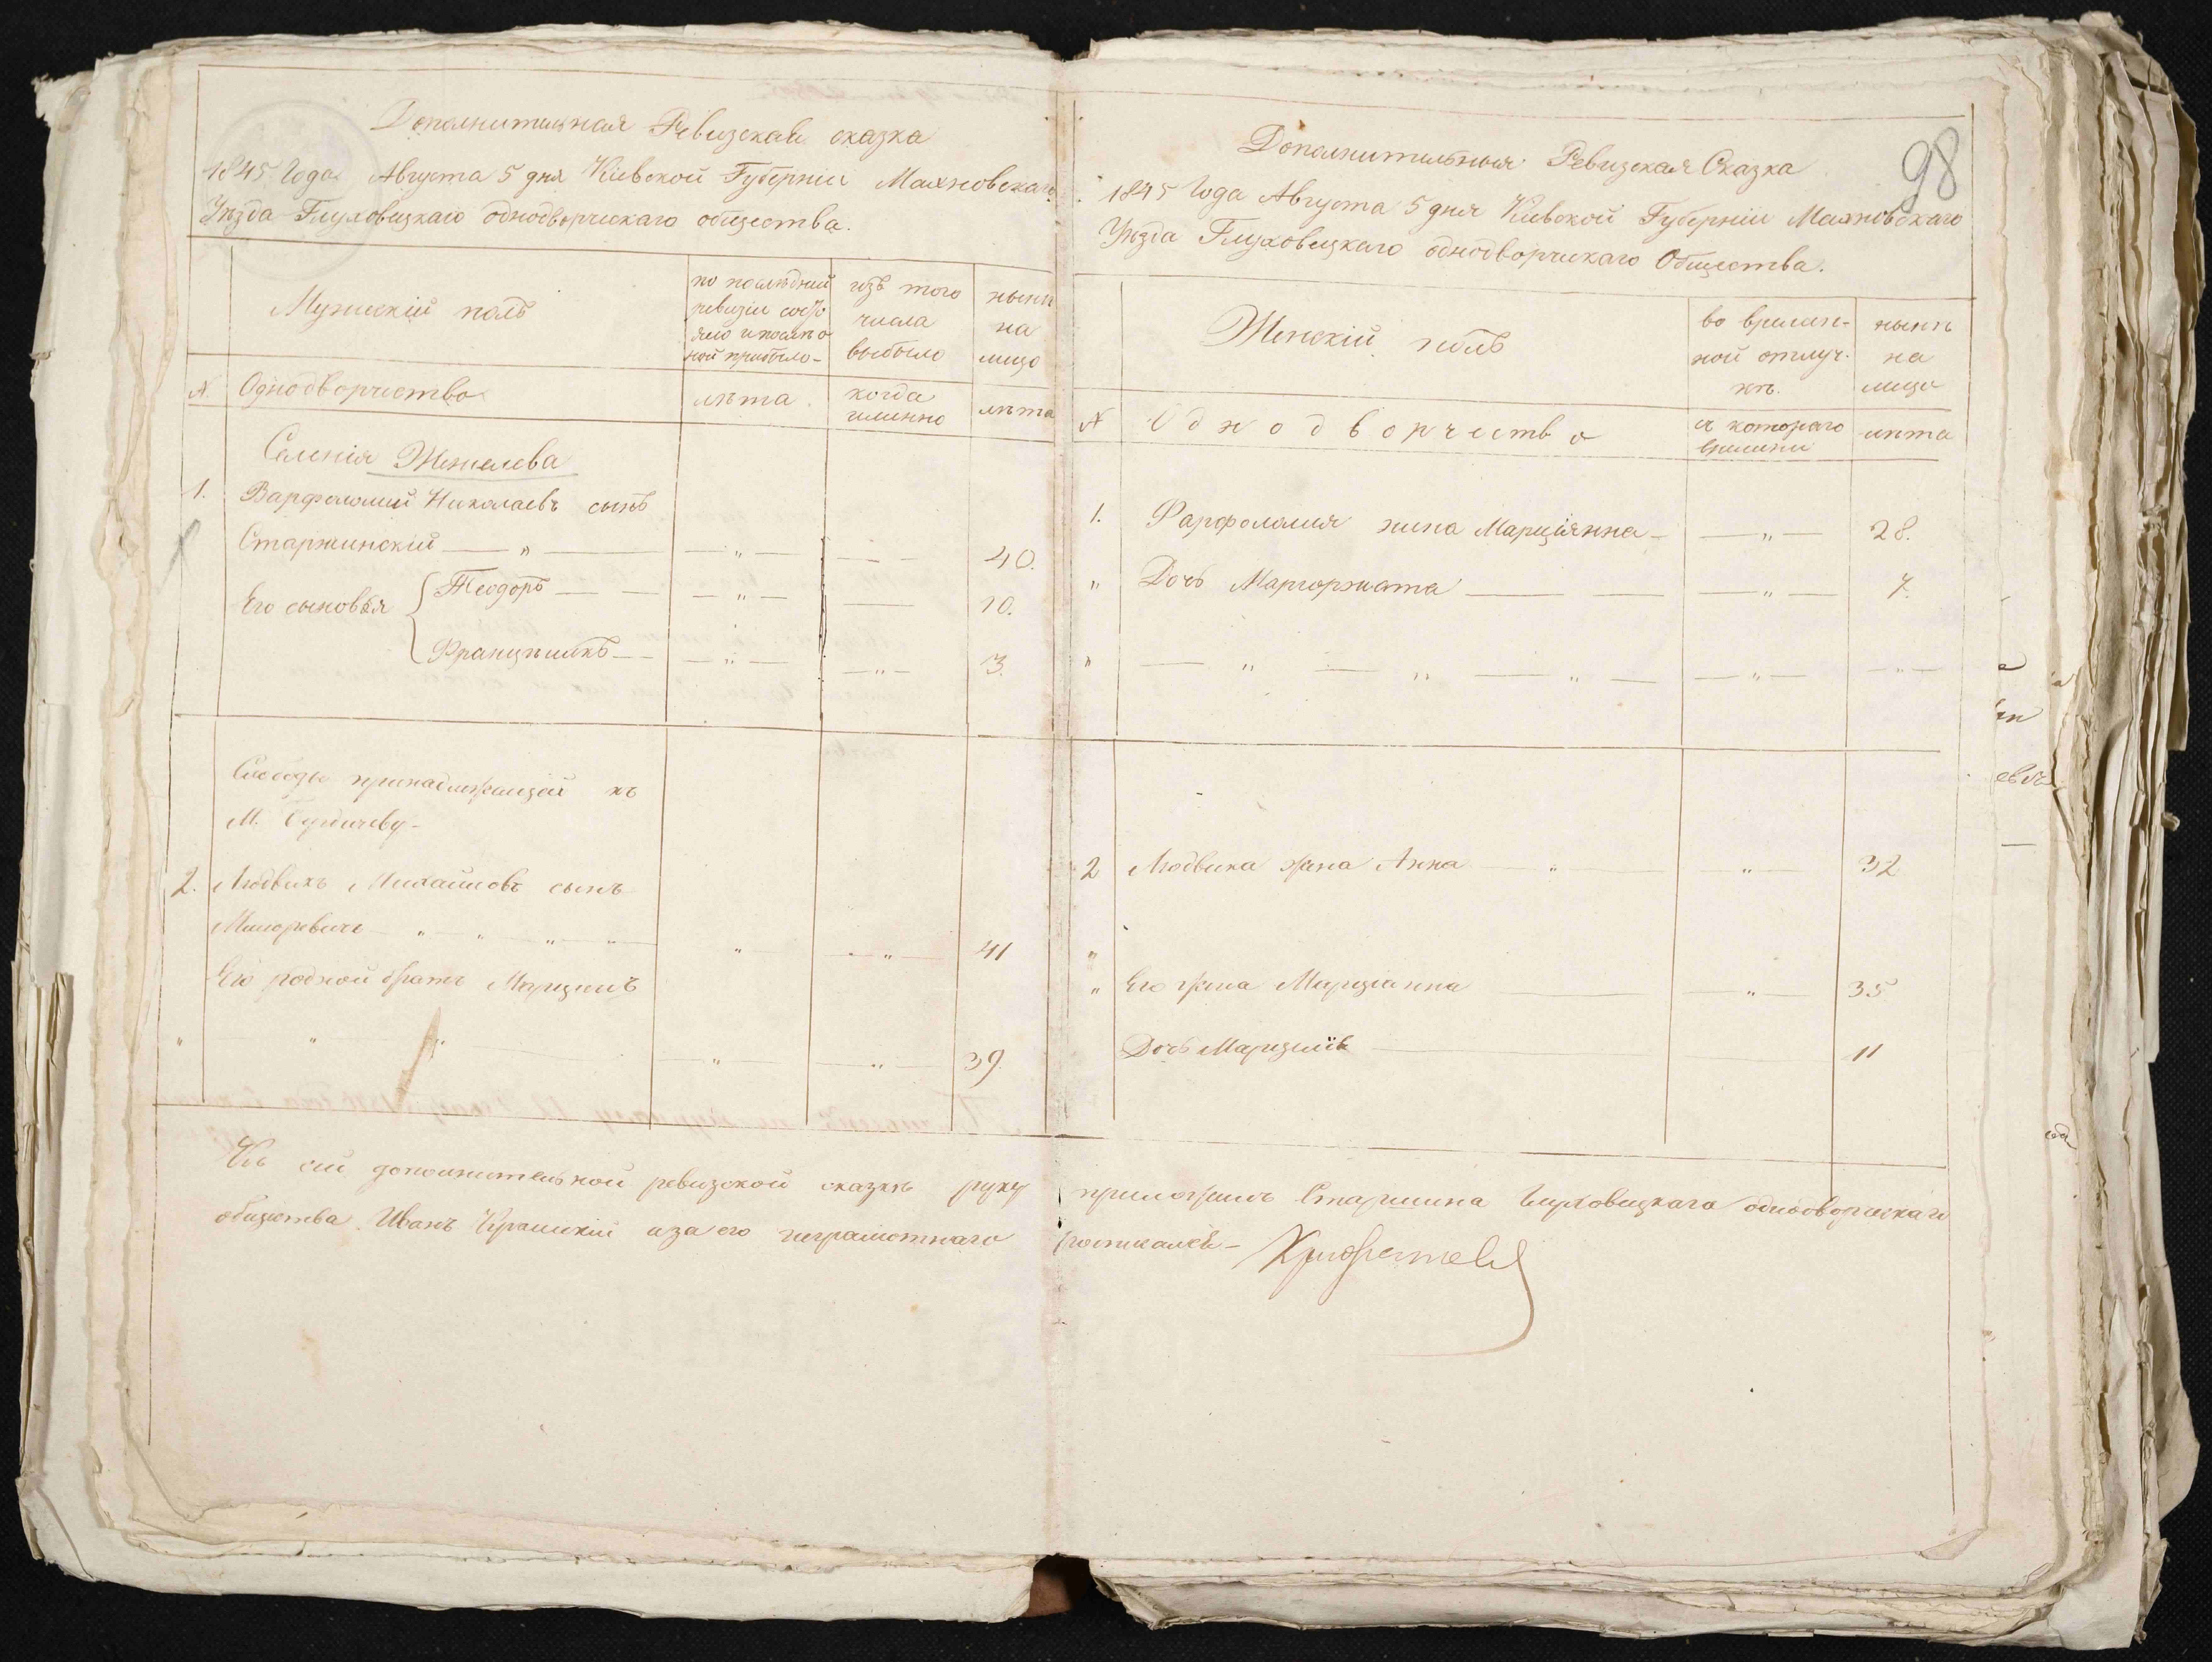 Дополнительная Ревизская сказка
1845 Года Августа 5 дня Кіевской Губерніи Махновскаго
Уѣзда Глуховецкаго однодворческаго общества.
Мужескій полъ
по послѣдней
ревизіи состо
яло и послѣ о
ной прибыло
изъ того
числа
выбыло
нынѣ
на
лицо
№
Однодворчество
лѣта
когда
именно
лѣта
Селенія Жежелева
1. Варфоломей Николаевъ сынъ
Старжинскій — " — — " — — — 40.
Его сыновья { Теодоръ — — — " — — 10.
Францишкъ — — " — — " — 3.
Слободы принадлежащей къ
М. Бердичеву
2. Людвикъ Михайловъ сынъ
" " " " " " 41
Его родной братъ Марцинъ
" " " — " — — " — 39.
98
Дополнительная Ревизская Сказка
1845 Года Августа 5 дня Кіевской Губерніи Махновскаго
Уѣзда Глуховецкаго однодворчикаго Общества.
Женскій полъ
во времен-
ной отлуч-
кѣ.
нынѣ
на
лицо
№
Однодворчество
съ котораго
времени
лѣта
1. Фарфоломия жина Марціянна — — " — 28.
" Дочь Маргоржата — — — " — 7.
" — " — " — " — — " — — " —
2 Людвика жена Анна — " — " — 32
"
" Его жена Марціанна — — " — 35
Дочь — 11
Къ сей дополнительной ревизской сказкѣ руку приложилъ Старшина Глуховецкаго однодворческаго
общества Иванъ а за его неграмотнаго